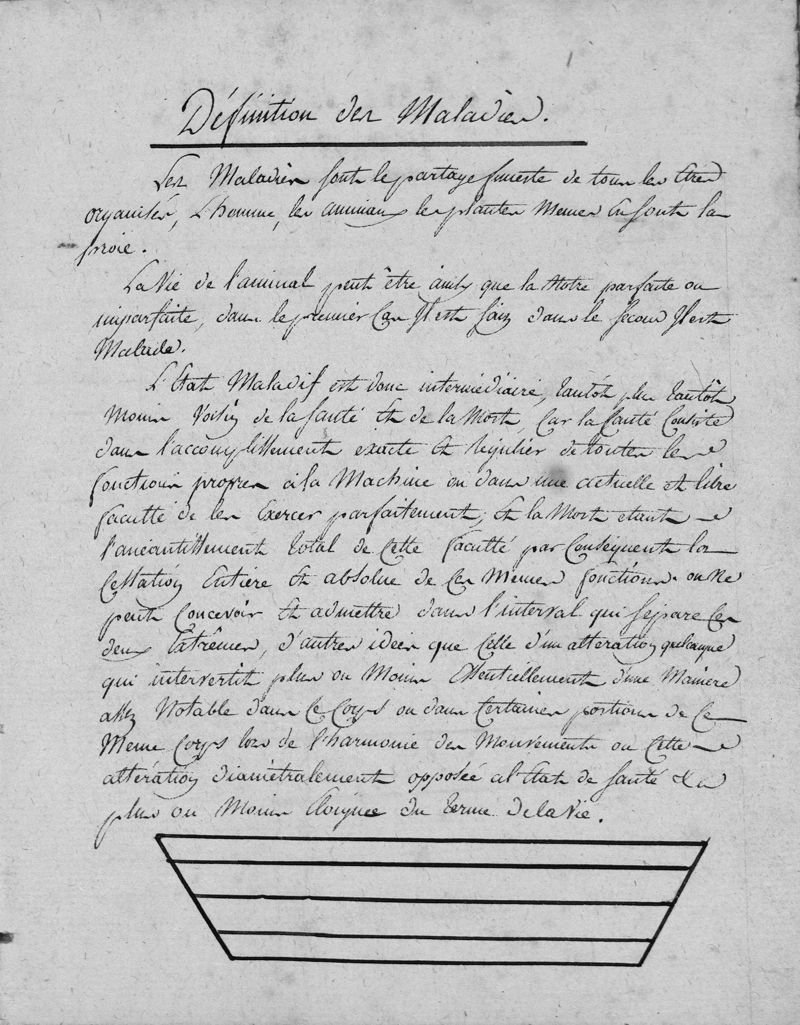 Définition des Maladies.
Les Maladies sont le partage funeste de tous les Etres
organisés, L'homme, les animaux les plantes Memes En sont la
proie.
La Vie de l'animal peut être ainsy que la Notre parfaite ou
imparfaite, dans le premier Cas Il est sain dans le second Il est
Malade.
L'Etat Maladif est donc intermédiaire, tantôt plus tantôt
Moins Voisin de la santé Et de la Mort, Car la Santé Consiste
dans l'accomplissement exacte Et régulier de toutes les
fonctions propres à la Machine ou dans une actuelle et libre
faculté de les Exercer parfaitement; Et la Mort etant
l'anéantissement total de Cette faculté par Conséquent la
Cessation Entiere Et absolue de Ces Memes fonctions. on Ne
peut Concevoir Et admettre dans l'interval qui sépare Ces
deux Extrêmes, d'autres idées que Celle d'un altération quelconque
qui intervertit plus ou Moins Essentiellement d'une Maniere
assez Notable dans Ce Corps ou dans Certaines portions de Ce
Meme Corps lors de l'harmonie des Mouvements ou Cette
altération diamétralement opposée a l'Etat de santé
plus ou Moins Eloignée du terme de la Vie.